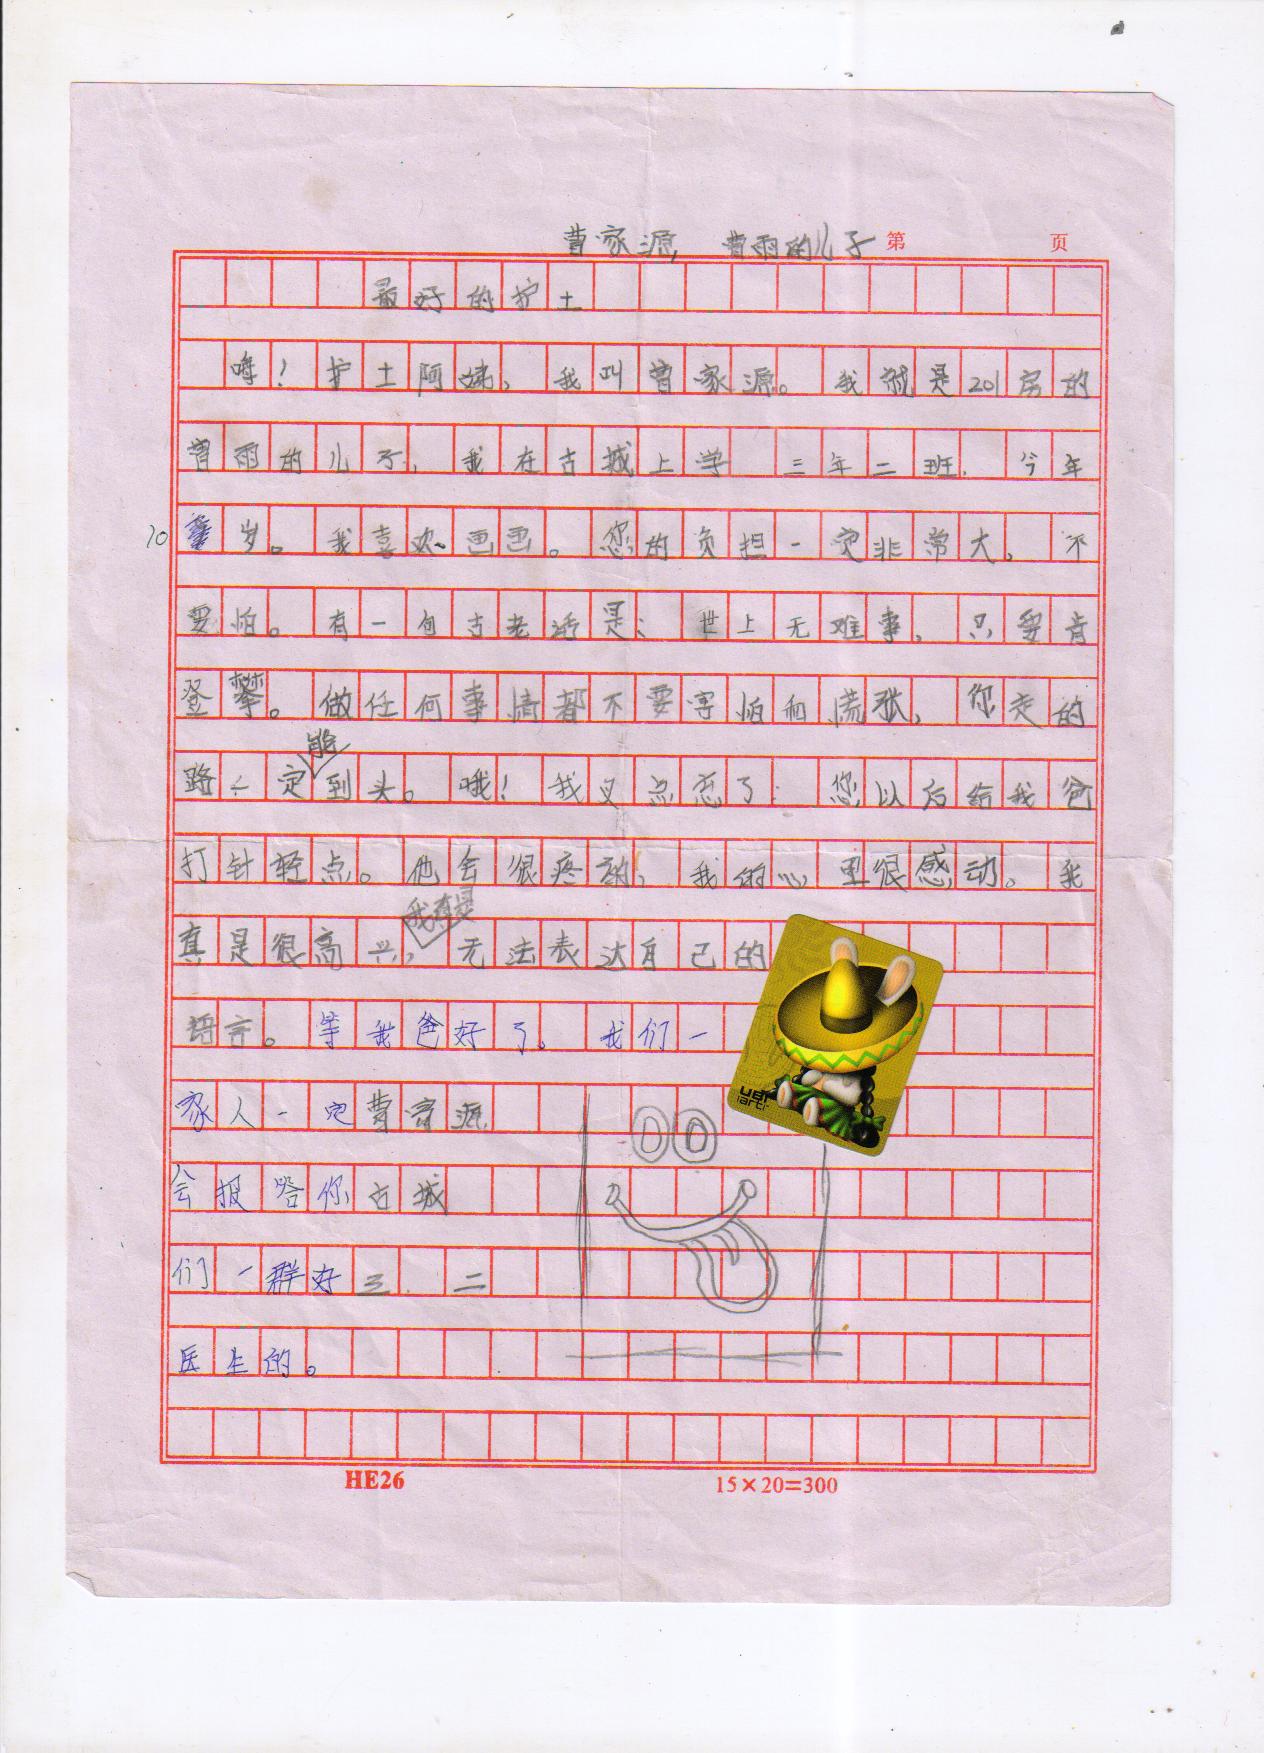 曹家源, 曹雨的儿子 第 页
最好的护士
嗨！护士阿姨，我叫曹家源。我就是201房的
曹雨的儿子，我在古城上学 三年二班. 今年
10岁。我喜欢画画。您的负担一定非常大，不
要怕。有一句古老话是：世上无难事，只要肯
登攀。做任何事情都不要害怕和慌张，你走的
路一定能到头。哦！我又点忘了：您以后给我爸
打针轻点。他会很疼的，我的心里很感动。我
真是很高兴，我真是无法表达自己的
语言。等我爸好了。我们一
家人一定 曹家源
会报答你 古城
们一群好 三.二
医生的。
HE26 15×20=300